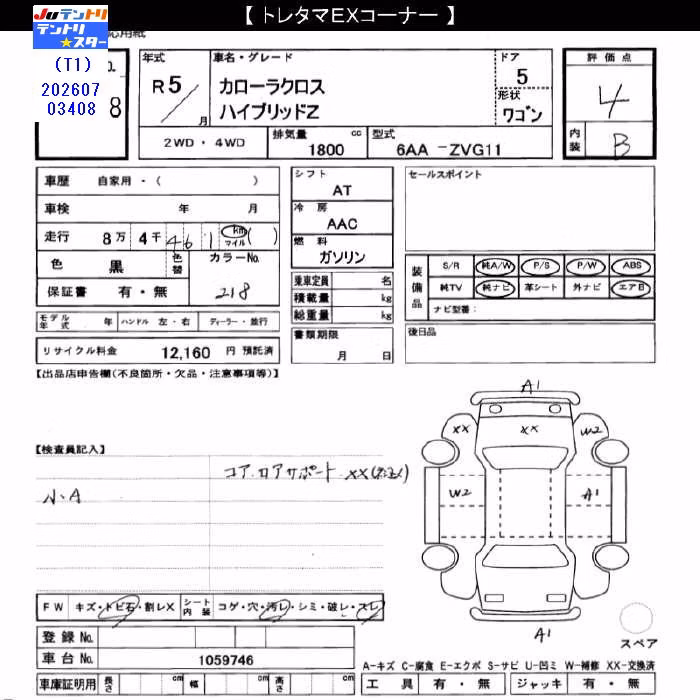 【 トレタマEXコーナー 】
JUテントリ
テントリ★スター
応用紙
(T1)
202607
03408
No.
8
年式
R5
月
車名・グレード
カローラクロス
ハイブリッドZ
ドア
5
形状
ワゴン
2WD ・ 4WD
排気量
cc
1800
型式
6AA -ZVG11
評価点
4
内装
B
車歴 自家用・( )
車検 年 月
走行 8万 4千 461 km マイル ( )
色 黒 色替 カラーNo.
保証書 有・無 218
モデル年式 年 ハンドル 左・右 ディーラー・並行
リサイクル料金 12,160 円 預託済
シフト
AT
冷房
AAC
燃料
ガソリン
乗車定員 名
積載量 kg
総重量 kg
書類期限
月 日
セールスポイント
装備品
S/R 純A/W P/S P/W ABS
純TV 純ナビ 革シート 外ナビ エアB
ナビ型番:
後日品
【出品店申告欄(不良箇所・欠品・注意事項等)】
【検査員記入】
コア.ロアサポート XX
小.A
A1
XX
XX
W2
W2
A1
A1
スペア
FW キズ・トビ石・割レX シート内装 コゲ・穴・汚レ・シミ・破レ・スレ
登録No.
車台No. 1059746
車庫証明用 長さ cm 幅 cm 高さ cm
A-キズ C-腐食 E-エクボ S-サビ U-凹ミ W-補修 XX-交換済
工具 有・無 ジャッキ 有・無